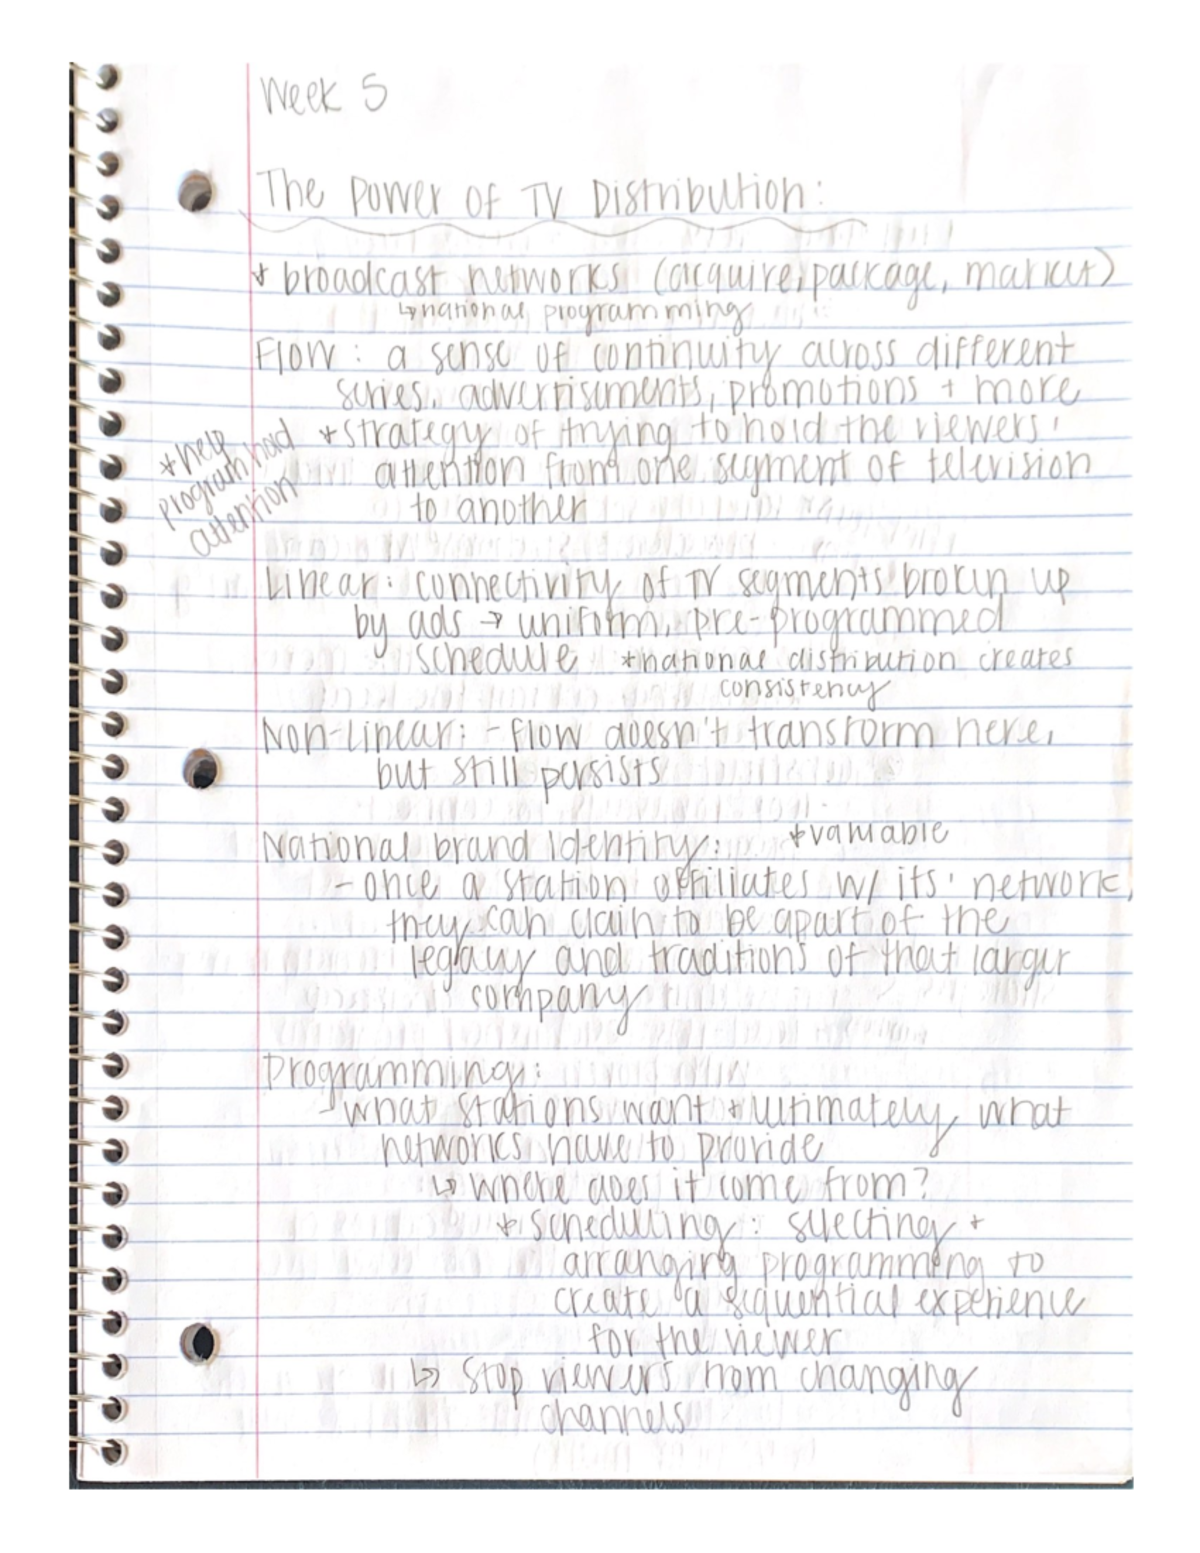 Week 5
The Power of TV Distribution:
* broadcast networks (acquire, package, market)
↳ national programming
Flow: a sense of continuity across different
series, advertisements, promotions + more
* strategy of trying to hold the viewers'
attention from one segment of television
to another
* help
program hold
attention
Linear: connectivity of TV segments broken up
by ads → uniform, pre-programmed
schedule * national distribution creates
consistency
Non-Linear: - flow doesn't transform here,
but still persists
National brand Identity: * variable
- once a station affiliates w/ its' network,
they can claim to be apart of the
legacy and traditions of that larger
company
Programming:
- what stations want + ultimately what
networks have to provide
↳ where does it come from?
* scheduling: selecting +
arranging programming to
create a sequential experience
for the viewer
↳ stop viewers from changing
channels